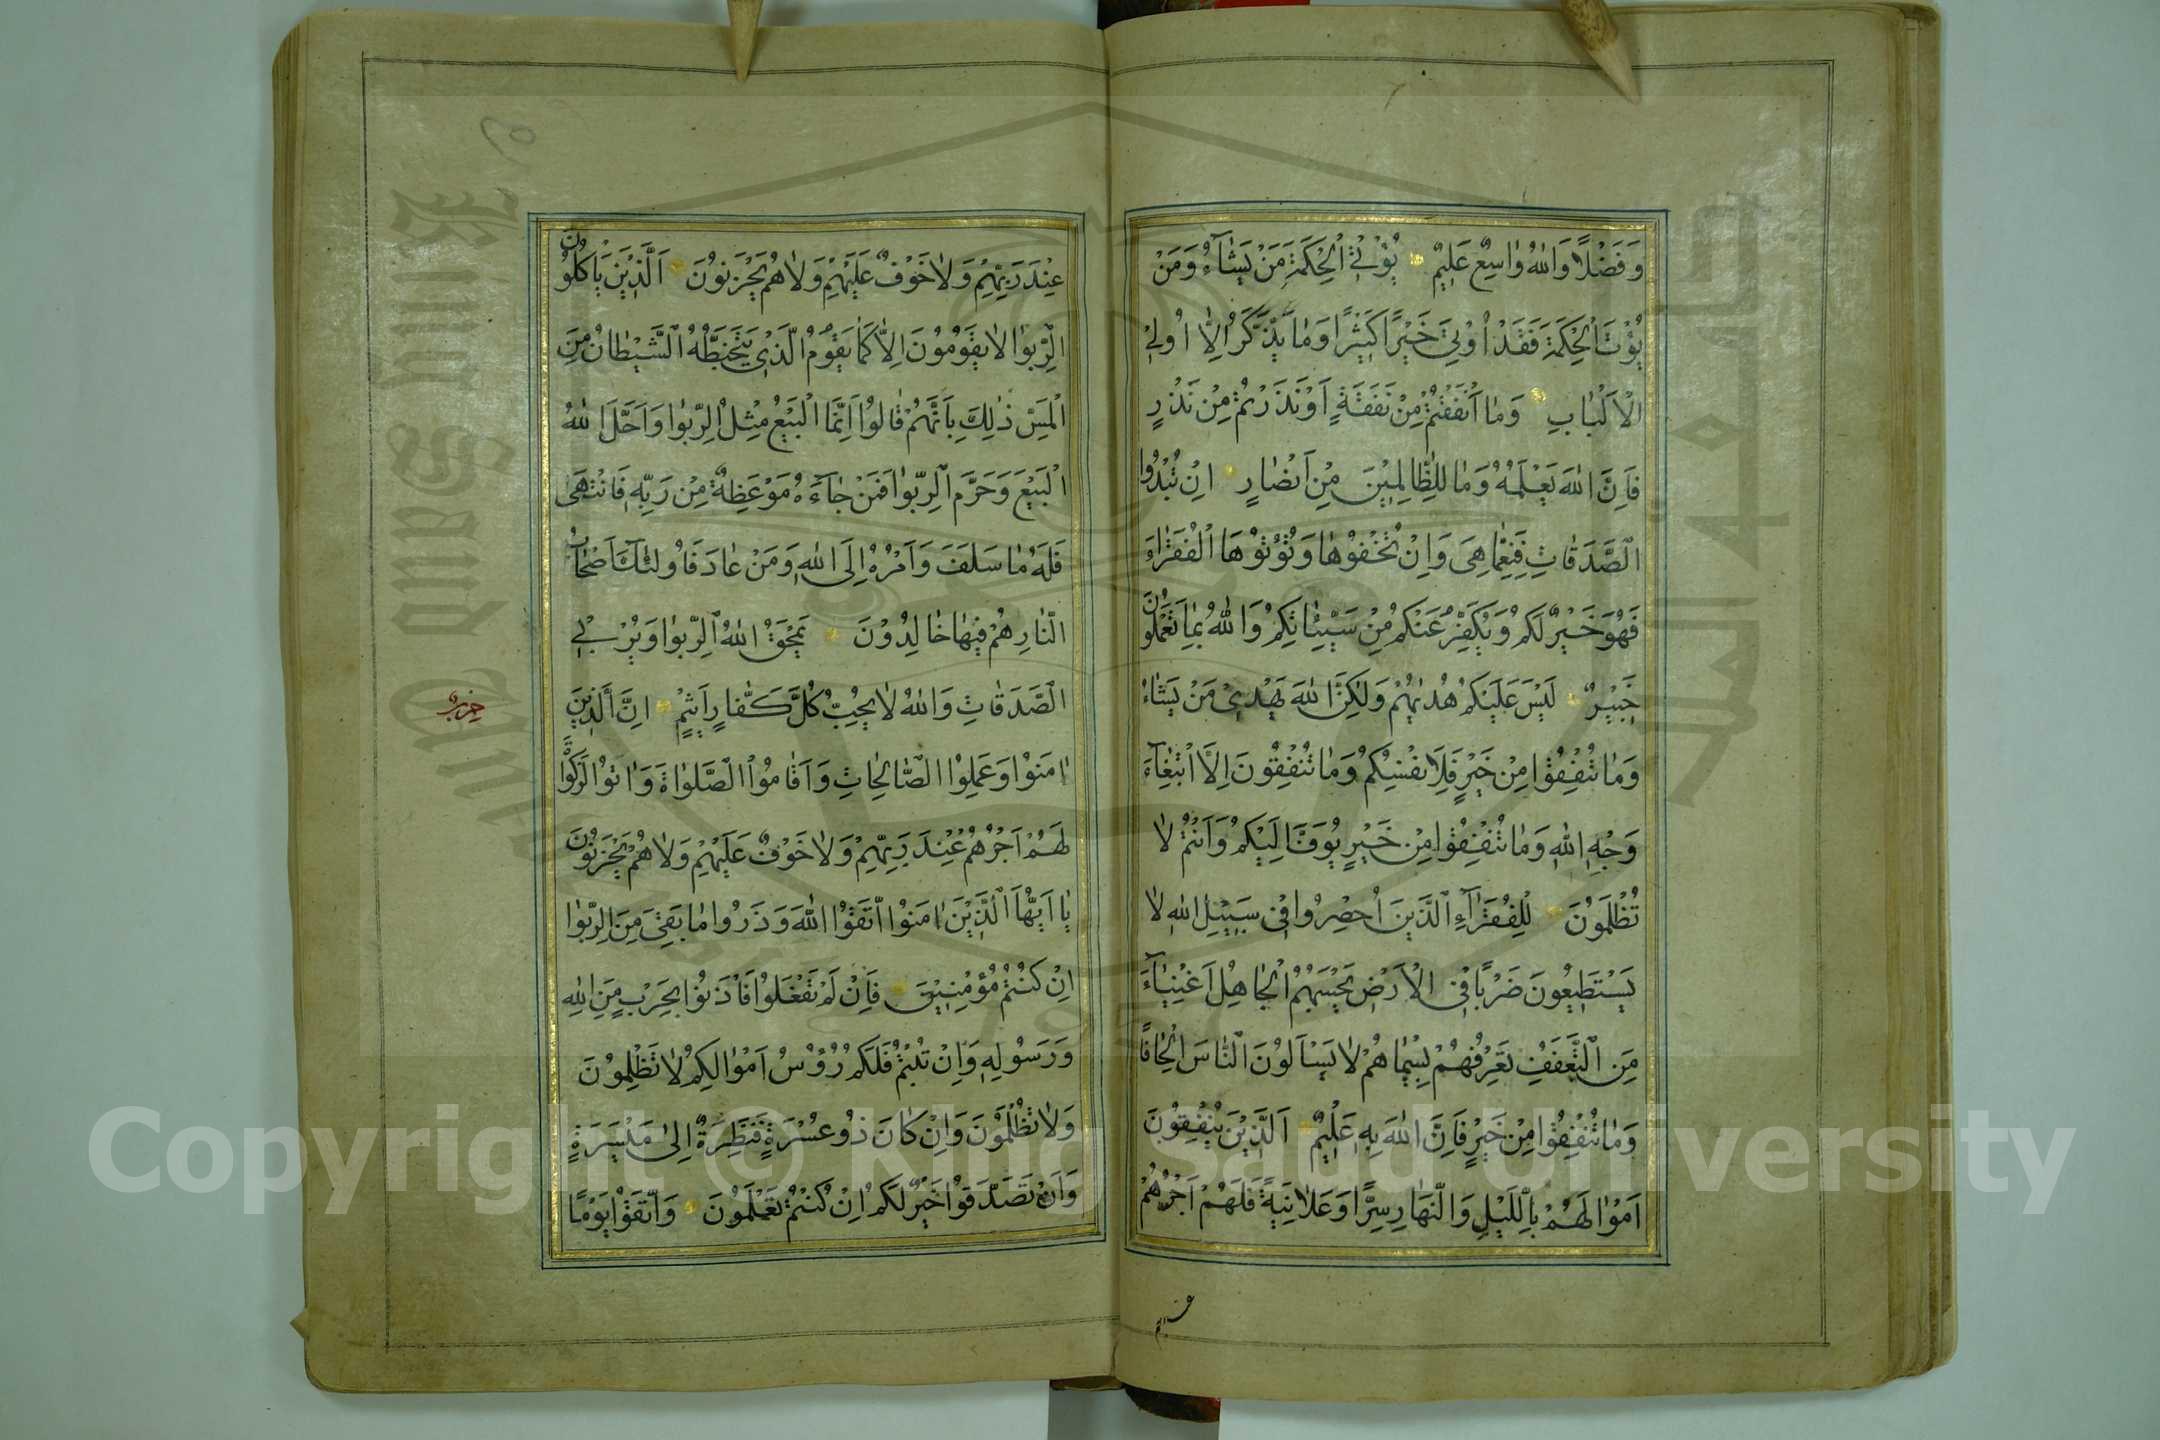 وَفَضْلًا وَاللهُ وَاسِعٌ عَلِيمٌ يُؤْتِي الْحِكْمَةَ مَنْ يَشَآءُ وَمَنْ
يُؤْتَ الْحِكْمَةَ فَقَدْ اُوتِيَ خَيْرًا كَثِيْرًا وَمَا يَذَّكَّرُ اِلَّا اُولِي
الْاَلْبَابِ وَمَا اَنْفَقْتُمْ مِنْ نَفَقَةٍ اَوْ نَذَرْتُمْ مِنْ نَذْرٍ
فَاِنَّ اللهَ يَعْلَمُهُ وَمَا لِلظَّالِمِيْنَ مِنْ اَنْصَارٍ اِنْ تُبْدُوا
الصَّدَقَاتِ فَنِعِمَّا هِيَ وَاِنْ تُخْفُوْهَا وَتُؤْتُوْهَا الْفُقَرَاءَ
فَهُوَ خَيْرٌ لَكُمْ وَيُكَفِّرُ عَنْكُمْ مِنْ سَيِّئَاتِكُمْ وَاللهُ بِمَا تَعْمَلُونَ
خَبِيْرٌ لَيْسَ عَلَيْكَ هُدٰيهُمْ وَلٰكِنَّ اللهَ يَهْدِيْ مَنْ يَشَاءُ
وَمَا تُنْفِقُوا مِنْ خَيْرٍ فَلِاَنْفُسِكُمْ وَمَا تُنْفِقُونَ اِلَّا ابْتِغَآءَ
وَجْهِ اللهِ وَمَا تُنْفِقُوا مِنْ خَيْرٍ يُوَفَّ اِلَيْكُمْ وَاَنْتُمْ لَا
تُظْلَمُونَ لِلْفُقَرَآءِ الَّذِينَ اُحْصِرُوا فِي سَبِيْلِ اللهِ لَا
يَسْتَطِيْعُونَ ضَرْبًا فِي الْاَرْضِ يَحْسَبُهُمُ الْجَاهِلُ اَغْنِيَآءَ
مِنَ التَّعَفُّفِ تَعْرِفُهُمْ بِسِيْمَاهُمْ لَا يَسْاَلُونَ النَّاسَ اِلْحَافًا
وَمَا تُنْفِقُوا مِنْ خَيْرٍ فَاِنَّ اللهَ بِهِ عَلِيْمٌ اَلَّذِيْنَ يُنْفِقُوْنَ
اَمْوَالَهُمْ بِالَّيْلِ وَالنَّهَارِ سِرًّا وَعَلَانِيَةً فَلَهُمْ اَجْرُهُمْ
عِنْدَ رَبِّهِمْ وَلَا خَوْفٌ عَلَيْهِمْ وَلَا هُمْ يَحْزَنُونَ اَلَّذِيْنَ يَاْكُلُونَ
الرِّبٰوا لَا يَقُومُونَ اِلَّا كَمَا يَقُومُ الَّذِي يَتَخَبَّطُهُ الشَّيْطَانُ مِنَ
الْمَسِّ ذٰلِكَ بِاَنَّهُمْ قَالُوا اِنَّمَا الْبَيْعُ مِثْلُ الرِّبٰوا وَاَحَلَّ اللهُ
الْبَيْعَ وَحَرَّمَ الرِّبٰوا فَمَنْ جَآءَهُ مَوْعِظَةٌ مِنْ رَبِّهِ فَانْتَهٰى
فَلَهُ مَا سَلَفَ وَاَمْرُهُ اِلَى اللهِ وَمَنْ عَادَ فَاُولٰئِكَ اَصْحَابُ
النَّارِ هُمْ فِيهَا خَالِدُوْنَ يَمْحَقُ اللهُ الرِّبٰوا وَيُرْبِي
الصَّدَقَاتِ وَاللهُ لَا يُحِبُّ كُلَّ كَفَّارٍ اَثِيْمٍ اِنَّ الَّذِيْنَ
اٰمَنُوْا وَعَمِلُوا الصَّالِحَاتِ وَاَقَامُوا الصَّلٰوةَ وَاٰتَوُا الزَّكٰوةَ
لَهُمْ اَجْرُهُمْ عِنْدَ رَبِّهِمْ وَلَا خَوْفٌ عَلَيْهِمْ وَلَا هُمْ يَحْزَنُونَ
يَا اَيُّهَا الَّذِيْنَ اٰمَنُوْا اتَّقُوا اللهَ وَذَرُوا مَا بَقِيَ مِنَ الرِّبٰوا
اِنْ كُنْتُمْ مُؤْمِنِيْنَ فَاِنْ لَمْ تَفْعَلُوا فَاْذَنُوا بِحَرْبٍ مِنَ اللهِ
وَرَسُولِهِ وَاِنْ تُبْتُمْ فَلَكُمْ رُؤُسُ اَمْوَالِكُمْ لَا تَظْلِمُونَ
وَلَا تُظْلَمُوْنَ وَاِنْ كَانَ ذُو عُسْرَةٍ فَنَظِرَةٌ اِلٰى مَيْسَرَةٍ
وَاَنْ تَصَدَّقُوا خَيْرٌ لَكُمْ اِنْ كُنْتُمْ تَعْلَمُونَ وَاتَّقُوْا يَوْمًا
حزب
Copyright © King Saud University